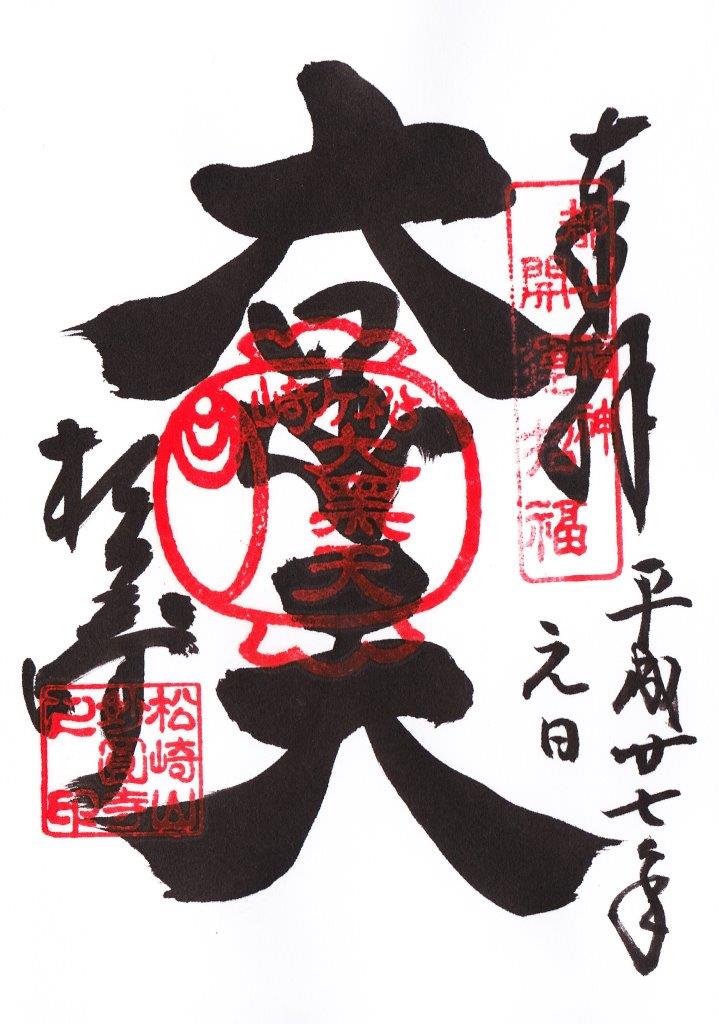 奉拝
都七福神
開運招福
平成廿七年
元日
大黒天
松ヶ崎
大黒天
松崎山
妙圓寺
之印